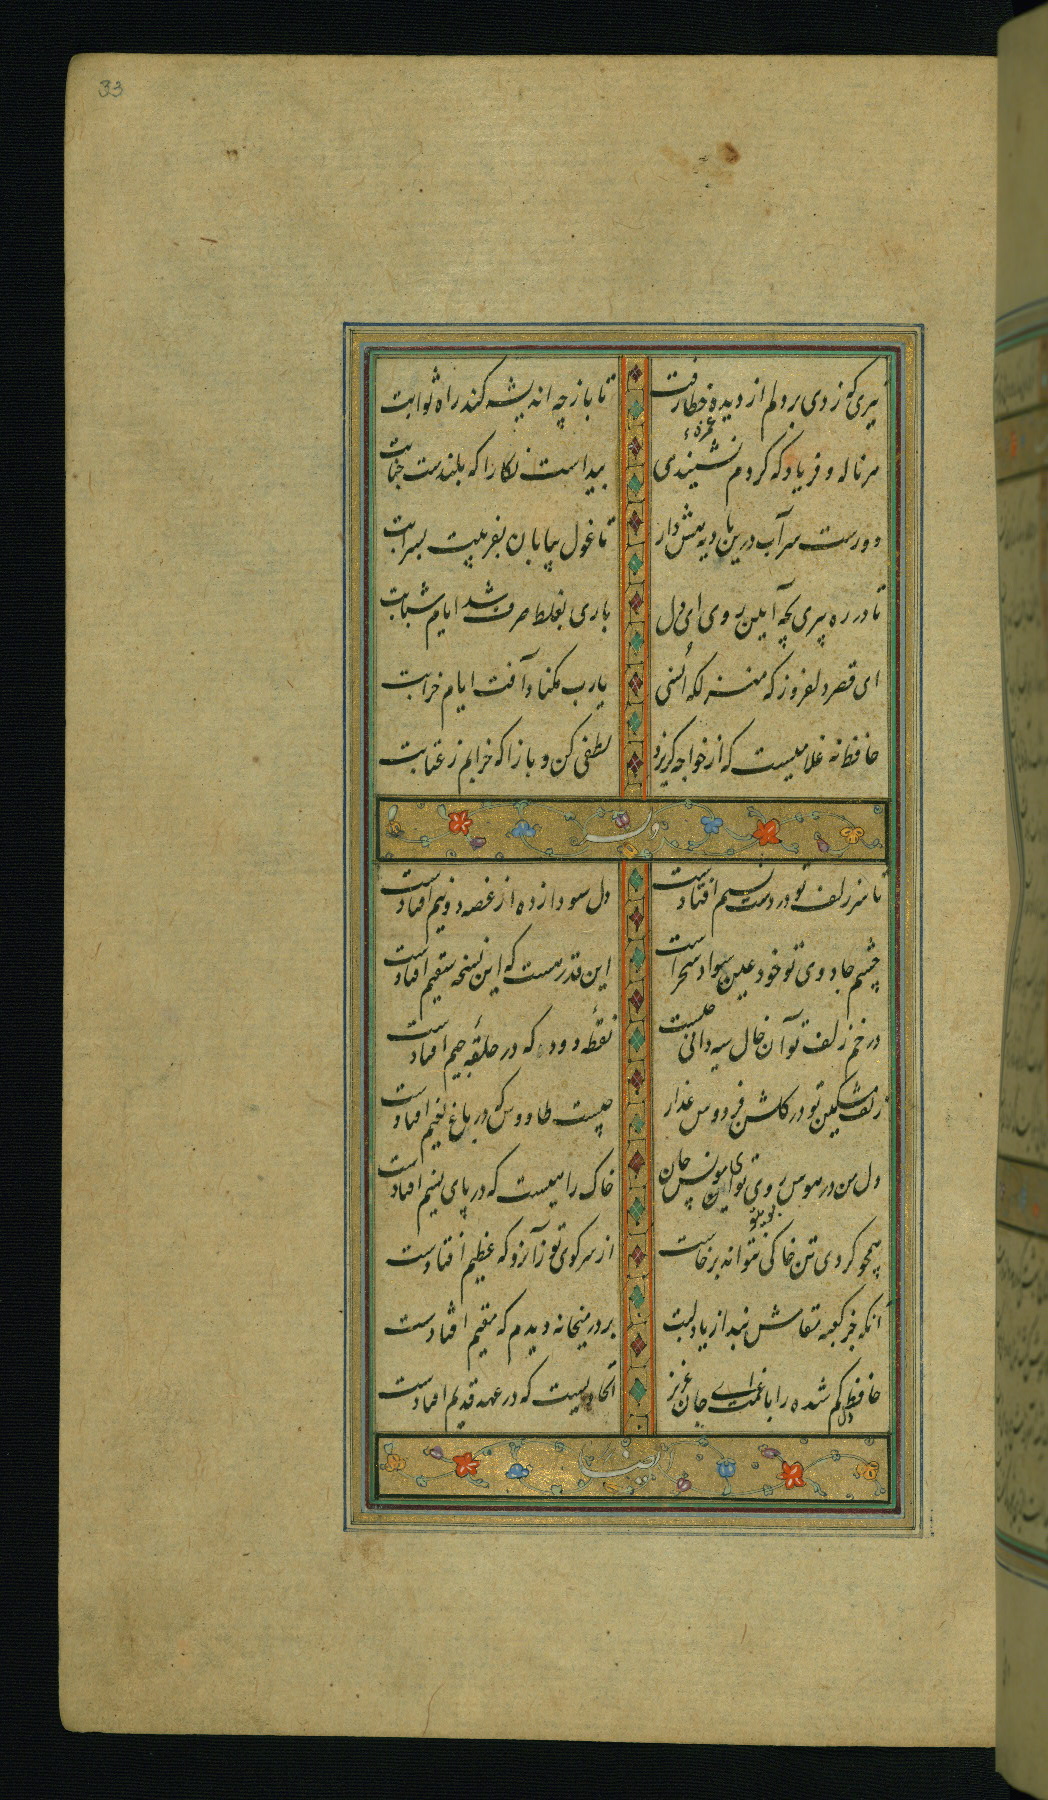 33
تیری که زدی بر دلم از دیده خطا رفت
تا باز چه اندیشه کند راه ثوابت
غمزهٔ
هر ناله و فریاد که کردم نشنیدی
پیداست نگارا که بلندست جنابت
دورست سر آب درین بادیه هش دار
تا غول بیابان نفریبت بسرابت
تا در ره پیری بچه آیین روی ای دل
باری بغلط صرف شد ایام شبابت
ای قصر دلفروز که منزلکه انسی
یارب مکناد آفت ایام خرابت
حافظ نه غلامیست که از خواجه کریزد
لطفی کن و باز آ که خرابم ز عتابت
وله
تا سر زلف تو در دست نسیم افتادست
دل سودا زده از غصه دو نیم افتادست
چشم جادوی تو خود عین سواد سحر است
این قدر هست که این نسخه سقیم افتادست
در خم زلف تو آن خال سیه دانی چیست
نقطهٔ دوده که در حلقهٔ جیم افتادست
زلف مشکین تو در کلشن فردوس عذار
چیست طاووس که در باغ نعیم افتادست
دل من در هوس روی تو ای مونس جان
خاک راهیست که در پای نسیم افتادست
همچو کردی تن خاکی نتواند برخاست
از سر کوی تو زآنرو که عظیم افتادست
آنکه جز کعبه مقامش نبد از یاد لبت
بر در میخانه دیدم که مقیم افتادست
حافظ کم شده را با غمت ای جان عزیز
دل
اتحادیست که در عهد قدیم افتادست
ایضا